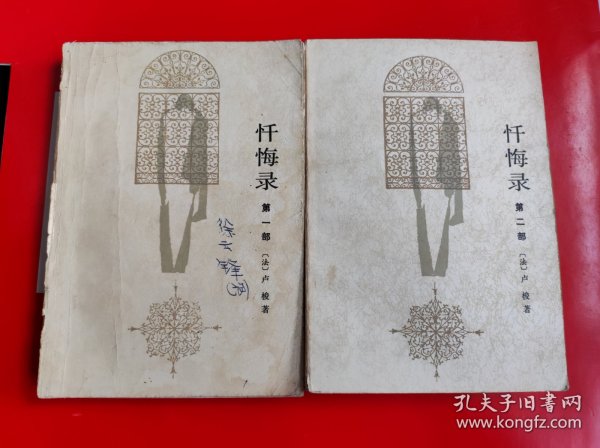 忏悔录
第一部
〔法〕卢梭著
徐云锋
忏悔录
第二部
〔法〕卢梭著
孔夫子旧书网
www.kongfz.com